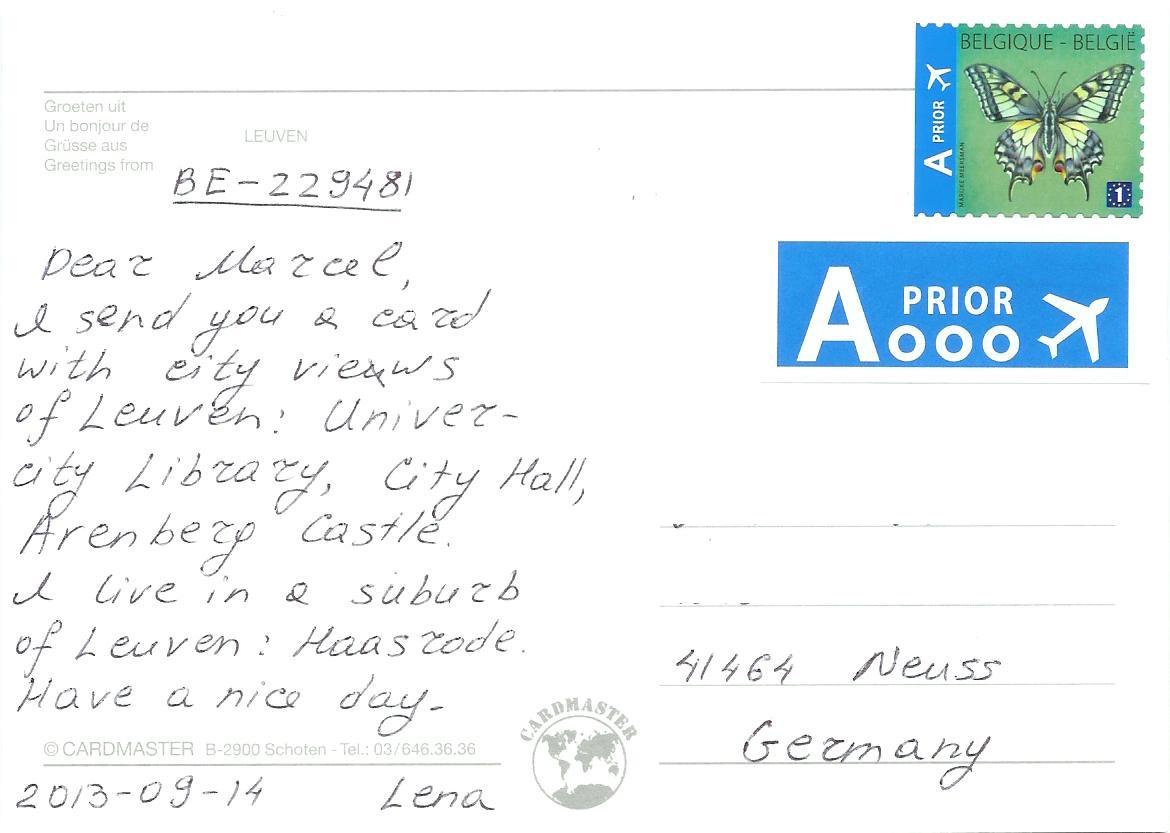 BELGIQUE - BELGIË
A PRIOR
MARIJKE MEERSMAN
1
Groeten uit
Un bonjour de
Grüsse aus
Greetings from
LEUVEN
BE-229481
A PRIOR
Dear Marcel,
I send you a card
with city viewws
of Leuven: Univer-
city Library, City Hall,
Arenberg Castle.
I live in a suburb
of Leuven: Haasrode.
Have a nice day-
41464 Neuss
Germany
CARDMASTER
© CARDMASTER B-2900 Schoten - Tel.: 03/646.36.36
2013-09-14 Lena